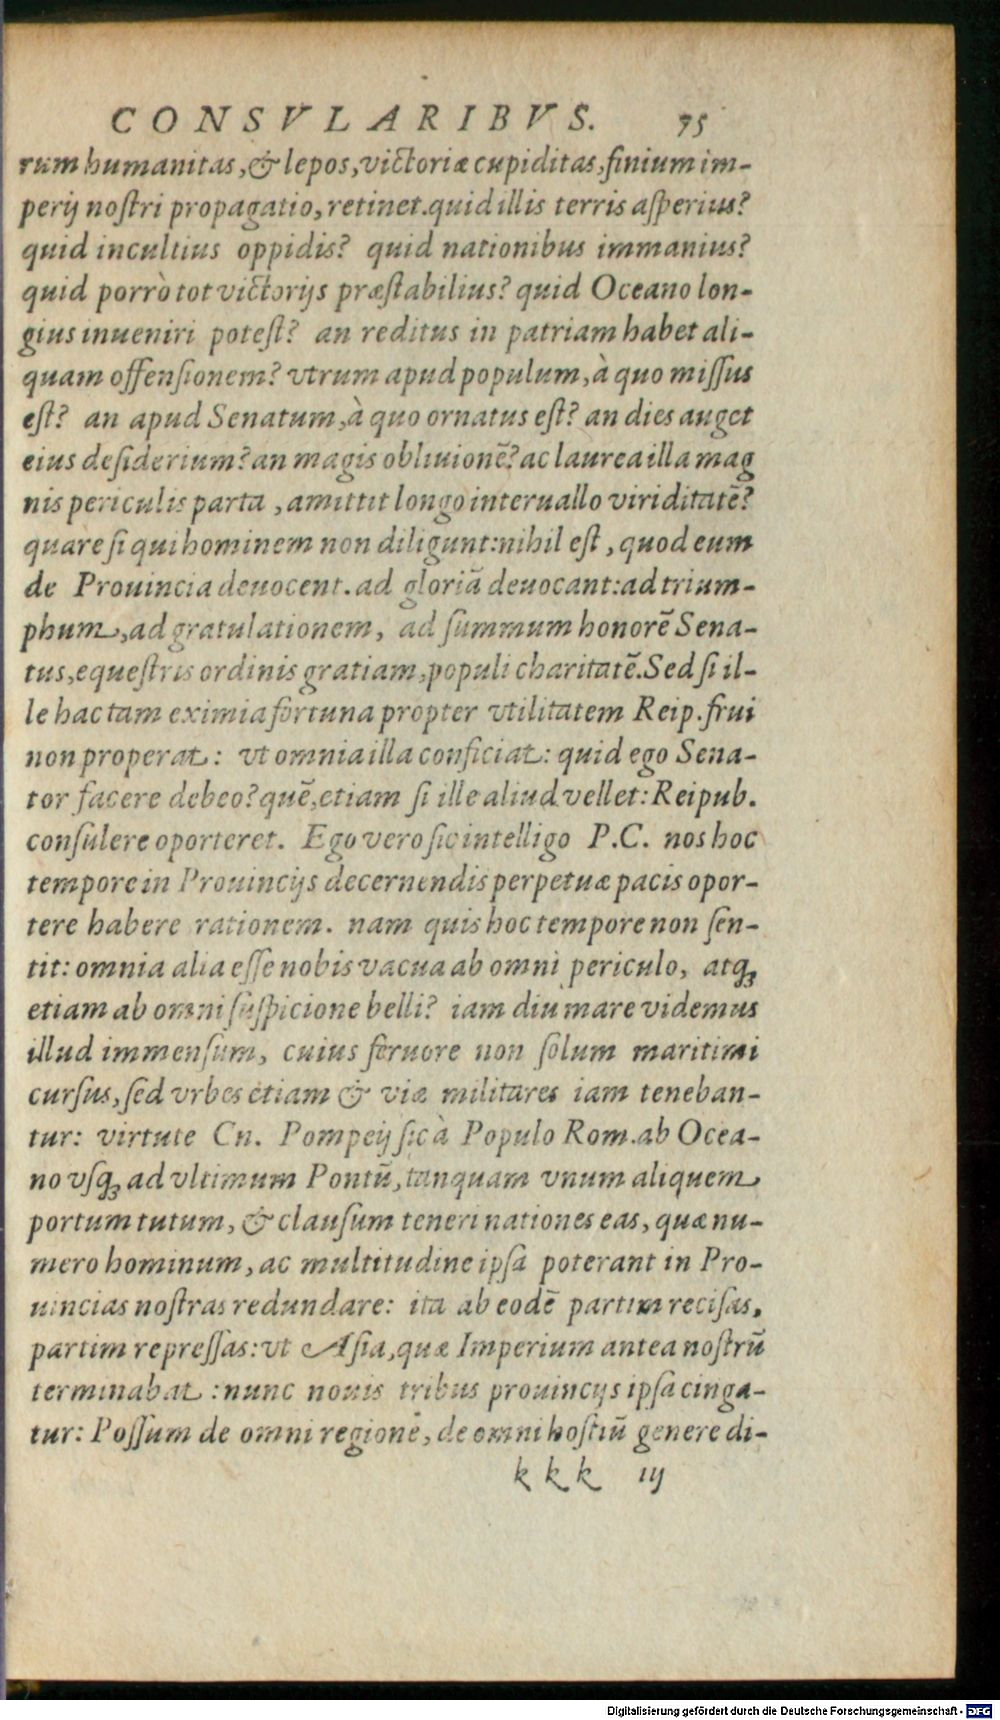 CONSVLARIBVS. 75
rum humanitas, & lepos, victoriæ cupiditas, finium im-
perij nostri propagatio, retinet. quid illis terris asperius?
quid incultius oppidis? quid nationibus immanius?
quid porrò tot victorijs præstabilius? quid Oceano lon-
gius inueniri potest? an reditus in patriam habet ali-
quam offensionem? vtrum apud populum, à quo missus
est? an apud Senatum, à quo ornatus est? an dies auget
eius desiderium? an magis obliuionē? ac laurea illa mag
nis periculis parta, amittit longo interuallo viriditatē?
quare si qui hominem non diligunt: nihil est, quod eum
de Prouincia deuocent. ad gloriā deuocant: ad trium-
phum, ad gratulationem, ad summum honorē Sena-
tus, equestris ordinis gratiam, populi charitatē. Sed si il-
le hac tam eximia fortuna propter vtilitatem Reip. frui
non properat: vt omnia illa conficiat: quid ego Sena-
tor facere debeo? quē, etiam si ille aliud vellet: Reipub.
consulere oporteret. Ego vero sic intelligo P.C. nos hoc
tempore in Prouincijs decernendis perpetuæ pacis opor-
tere habere rationem. nam quis hoc tempore non sen-
tit: omnia alia esse nobis vacua ab omni periculo, atq;
etiam ab omni suspicione belli? iam diu mare videmus
illud immensum, cuius feruore non solum maritimi
cursus, sed vrbes etiam & viæ militares iam teneban-
tur: virtute Cn. Pompeij sic à Populo Rom. ab Ocea-
no vsq; ad vltimum Pontū, tanquam vnum aliquem
portum tutum, & clausum teneri nationes eas, quæ nu-
mero hominum, ac multitudine ipsa poterant in Pro-
uincias nostras redundare: ita ab eodē partim recisas,
partim repressas: vt Asia, quæ Imperium antea nostrū
terminabat: nunc nouis tribus prouincijs ipsa cinga-
tur: Possum de omni regione, de omni hostiū genere di-
kkk iij
Digitalisierung gefördert durch die Deutsche Forschungsgemeinschaft - DFG